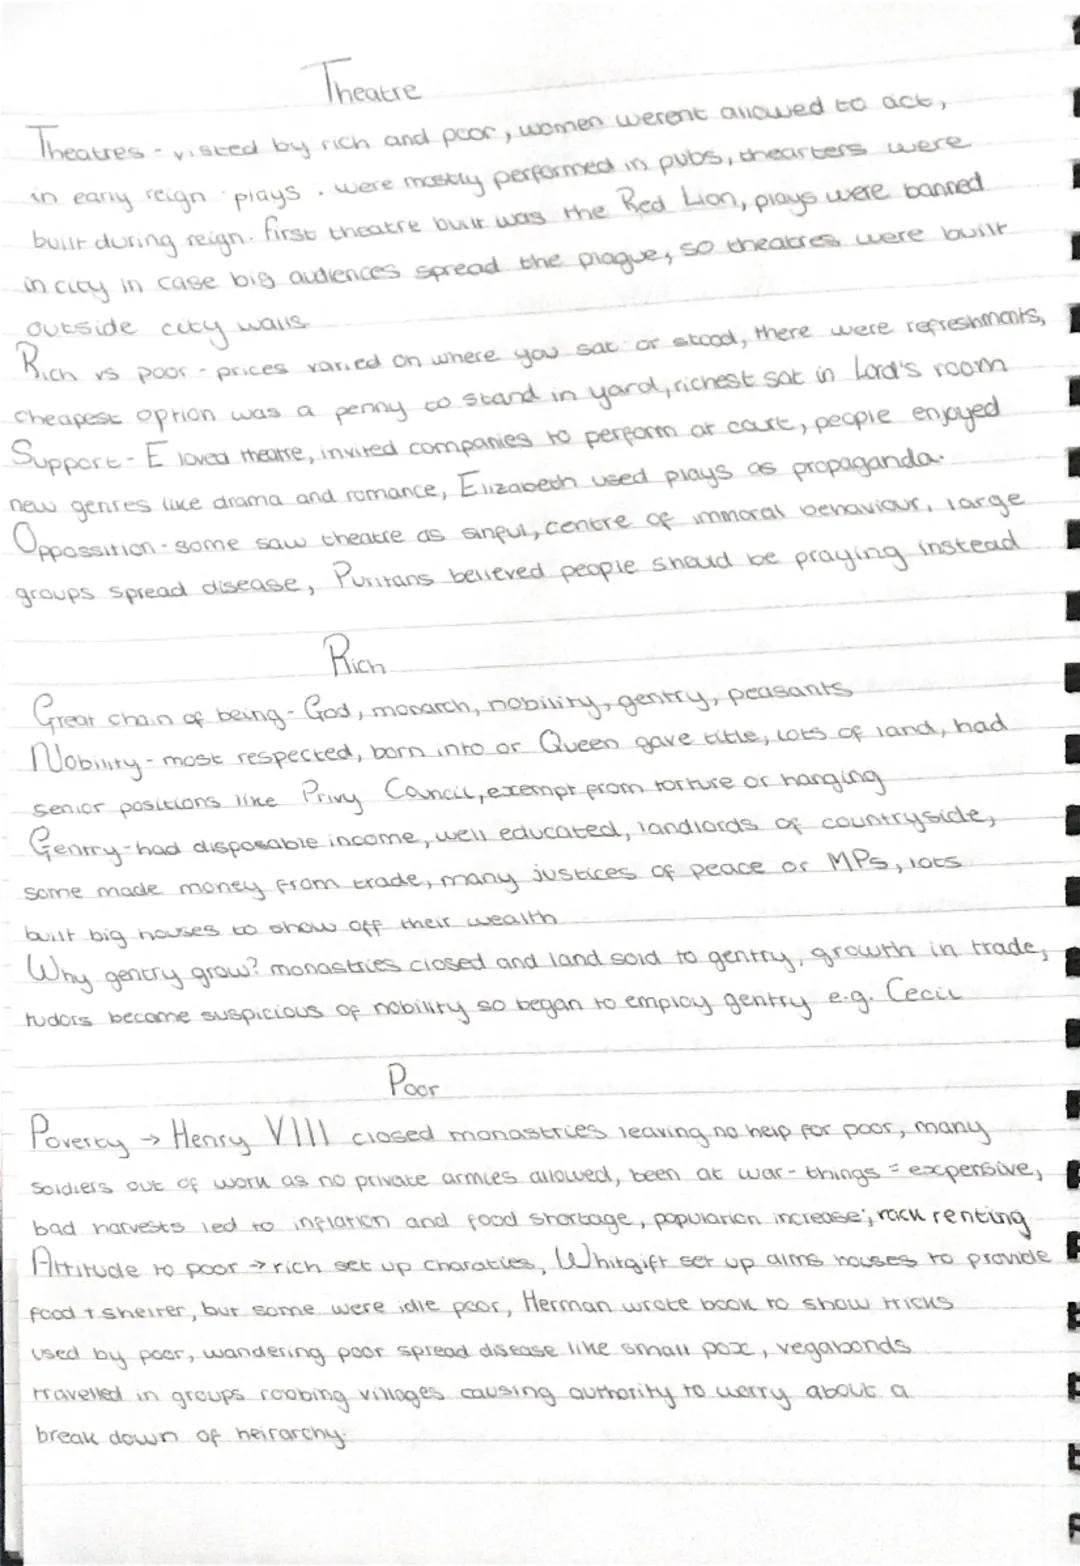 Theatre
Theatres - visted by rich and poor, women werent allowed to act,
in early reign plays . were mostly performed in pubs, thearters were
built during reign. first theatre built was the Red Lion, plays were banned
in city in case big audiences spread the plague, so theatres were built
outside city walls
Rich vs poor - prices varied on where you sat or stood, there were refreshments,
cheapest option was a penny to stand in yard, richest sat in Lord's room
Support - E loved theatre, invited companies to perform at court, people enjoyed
new genres like drama and romance, Elizabeth used plays as propaganda.
Oppossition - some saw theatre as sinful, centre of immoral behaviour, large
groups spread disease, Puritans believed people should be praying instead
Rich
Great chain of being - God, monarch, nobility, gentry, peasants
Nobility - most respected, born into or Queen gave title, lots of land, had
senior positions like Privy Council, exempt from torture or hanging
Gentry - had disposable income, well educated, landlords of countryside,
some made money from trade, many justices of peace or MPs, lots
built big houses to show off their wealth
Why gentry grow? monastries closed and land sold to gentry, growth in trade,
tudors became suspicious of nobility so began to employ gentry e.g. Cecil
Poor
Poverty → Henry VIII closed monastries leaving no help for poor, many
soldiers out of work as no private armies allowed, been at war - things = expensive,
bad harvests led to inflation and food shortage, population increase, rack renting
Attitude to poor → rich set up charaties, Whitgift set up alms houses to provide
food + shelter, but some were idle poor, Herman wrote book to show tricks
used by poor, wandering poor spread disease like small pox, vegabonds
travelled in groups roobing villages causing authority to worry about a
break down of heirarchy.